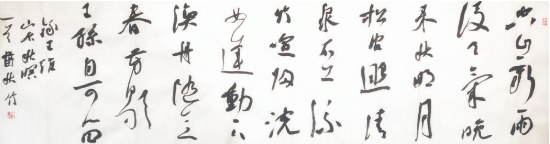 空山新雨
後天氣晚
来秋明月
松间照清
泉石上流
竹喧归浣
女蓮動下
渔舟随意
春芳歇
王孫自可留
錄王維
山居秋暝
一首